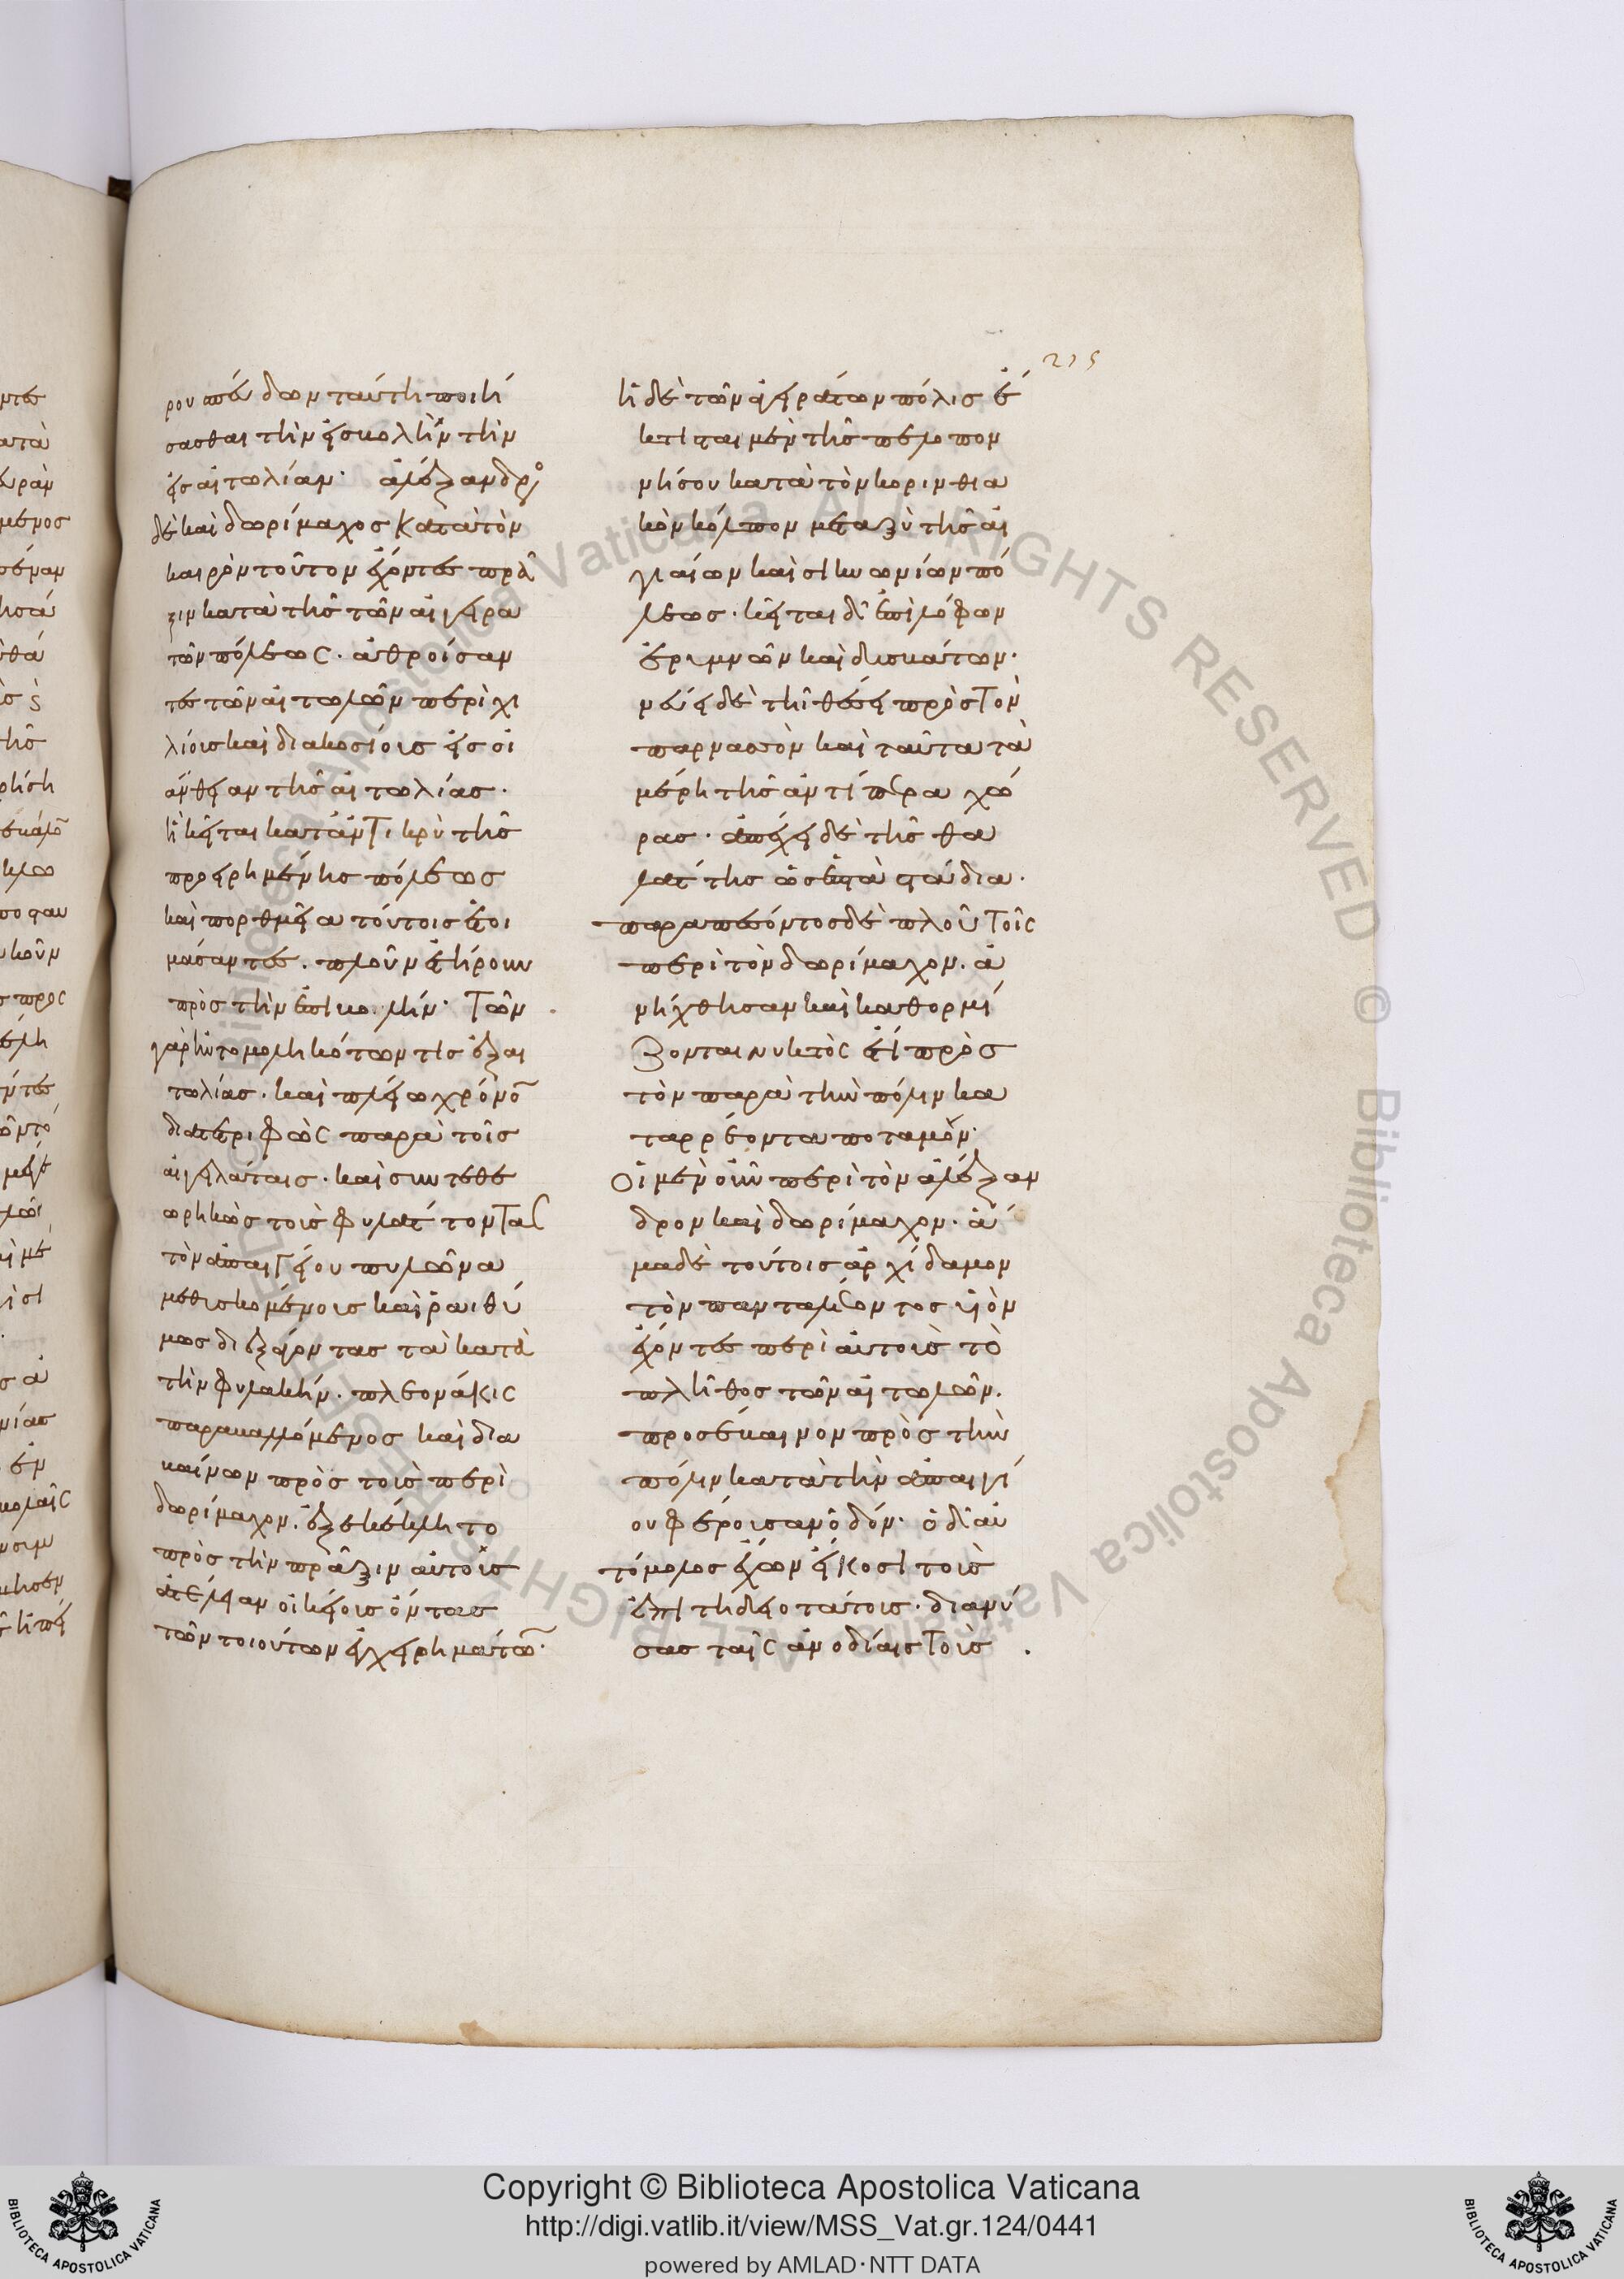 ρου σπεύδων ταύτη ποιή
σασθαι τὴν εἰσβολὴν τὴν
εἰς αἰτωλίαν· ἀλέξανδρο
δὲ καὶ δωρίμαχος κατὰ τὸν
καιρὸν τοῦτον ἔχοντες πρᾶ
ξιν κατὰ τῆς τῶν αἰγειρα
τῶν πόλεως· ἀθροίσαν
τες τῶν αἰτωλῶν περὶ χι
λίους καὶ διακοσίους εἰς οἰ
άνθειαν τῆς αἰτωλίας·
ἣ κεῖται καταντικρὺ τῆς
προειρημένης πόλεως
καὶ πορθμεῖα τούτοις ἑτοι
μάσαντες· πλοῦν ἐτήρουν
πρὸς τὴν ἐπιβολήν· τῶν
γὰρ ηὐτομοληκότων τις ἐξ αι
τωλίας· καὶ πλείω χρόνο
διατετριφὼς παρὰ τοῖς
αἰγειράταις· καὶ συντεθε
ωρηκὼς τοὺς φυλάττοντας
τὸν ἀπ αἰγείου πυλῶνα
μεθυσκομένους καὶ ῥαιθύ
μως διεξάγοντας τὰ κατὰ
τὴν φυλακήν· πλεονάκις
παραβαλλόμενος καὶ δια
βαίνων πρὸς τοὺς περὶ
δωρίμαχον· ἐξεκέκλητο
πρὸς τὴν πρᾶξιν αὐτοὺς
ἅτε λίαν οἰκείους ὄντας
τῶν τοιούτων ἐγχειρημάτω·
215
ἡ δὲ τῶν αἰγειρατῶν πόλις ἔ
κτισται μὲν τῆς πελοπον
νήσου κατὰ τὸν κορινθια
κὸν κόλπον μεταξὺ τῆς αἰ
γιαίων καὶ σικυωνίων πό
λεως· κεῖται δ' ἐπὶ λόφων
ἐρυμνῶν καὶ δυσβάτων·
νεύει δὲ τῆ θέσει πρὸς τὸν
παρνασσὸν καὶ ταῦτα τὰ
μέρη τῆς ἀντίπερα χώ
ρας· ἀπέχει δὲ τῆς θα
λάττης ὡς ἑπτὰ στάδια·
παραπεσόντος δὲ πλοῦ τοῖς
περὶ τὸν δωρίμαχον· ἀ
νήχθησαν καὶ καθορμί
ζονται νυκτὸς ἔτι πρὸς
τὸν παρὰ τὴν πόλιν κα
ταρρέοντα ποταμόν·
οἱ μὲν οὖν περὶ τὸν ἀλέξαν
δρον καὶ δωρίμαχον· ἅ
μα δὲ τούτοις ἀρχίδαμον
τὸν πανταλέοντος υἱὸν
ἔχοντες περὶ αὐτοὺς τὸ
πλῆθος τῶν αἰτωλῶν·
προσέβαινον πρὸς τὴν
πόλιν κατὰ τὴν ἀπ αιγί
ου φέρουσαν ὁδόν· ὁ δ' αὐ
τόμολος ἔχων εἴκοσι τοὺς
ἐπιτηδειοτάτους· διανύ
σας ταῖς ἀνοδίαις τοὺς
Copyright © Biblioteca Apostolica Vaticana
http://digi.vatlib.it/view/MSS_Vat.gr.124/0441
powered by AMLAD·NTT DATA